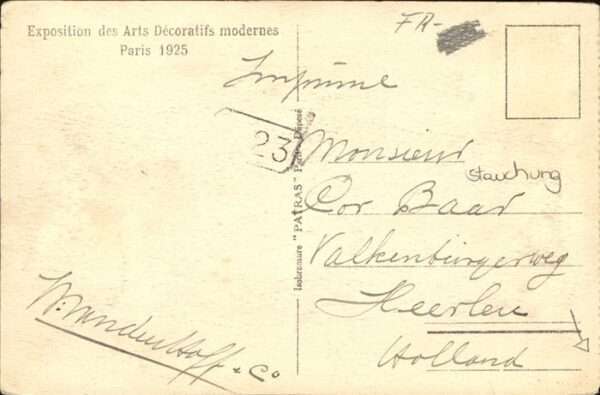 Exposition des Arts Décoratifs modernes
Paris 1925
FR-
Imprimé
23
Monsieur
Stauchung
Cor Baar
Valkenburgerweg
Heerlen
Holland
& Co
"PATRAS" Paris